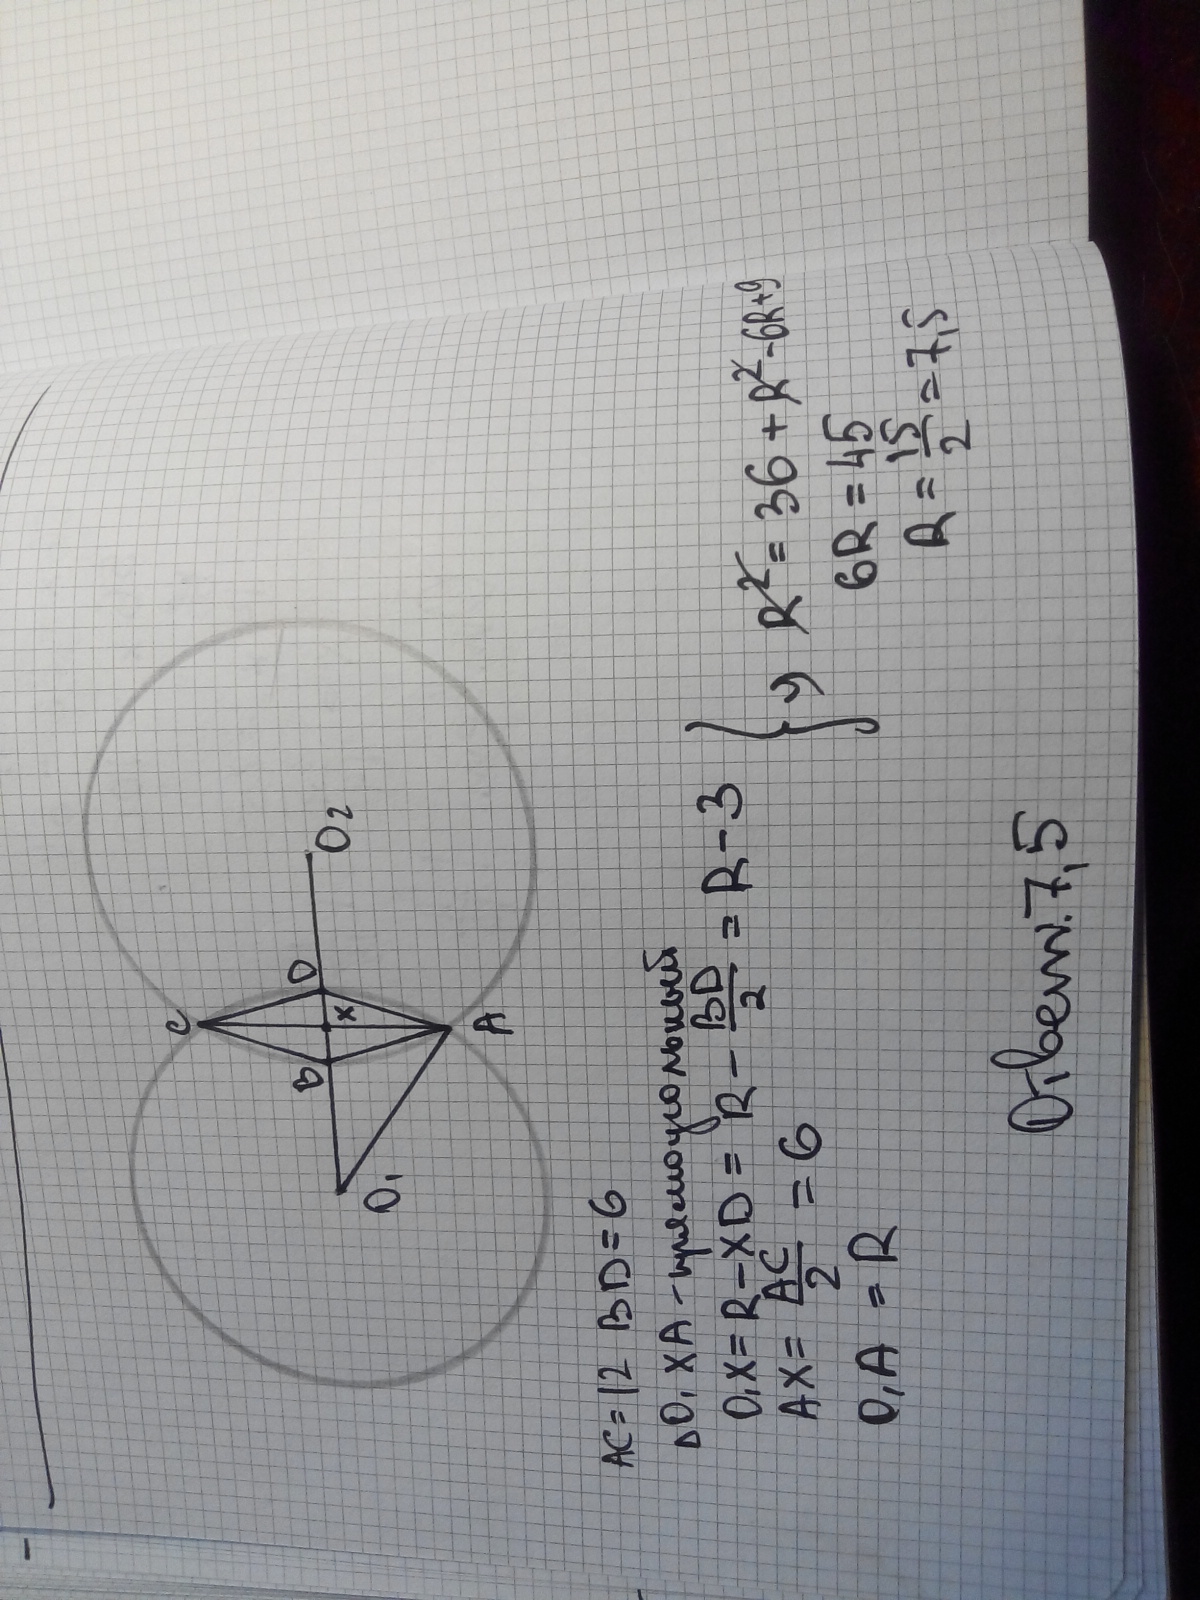 C
B
D
x
O₁
O₂
A
AC=12 BD=6
ΔO₁XA - прямоугольный
O₁X=R-XD=R-BD/2=R-3
AX=AC/2=6
O₁A=R
} y R²=36+R²-6R+9
6R=45
R=15/2=7,5
Ответ.7,5